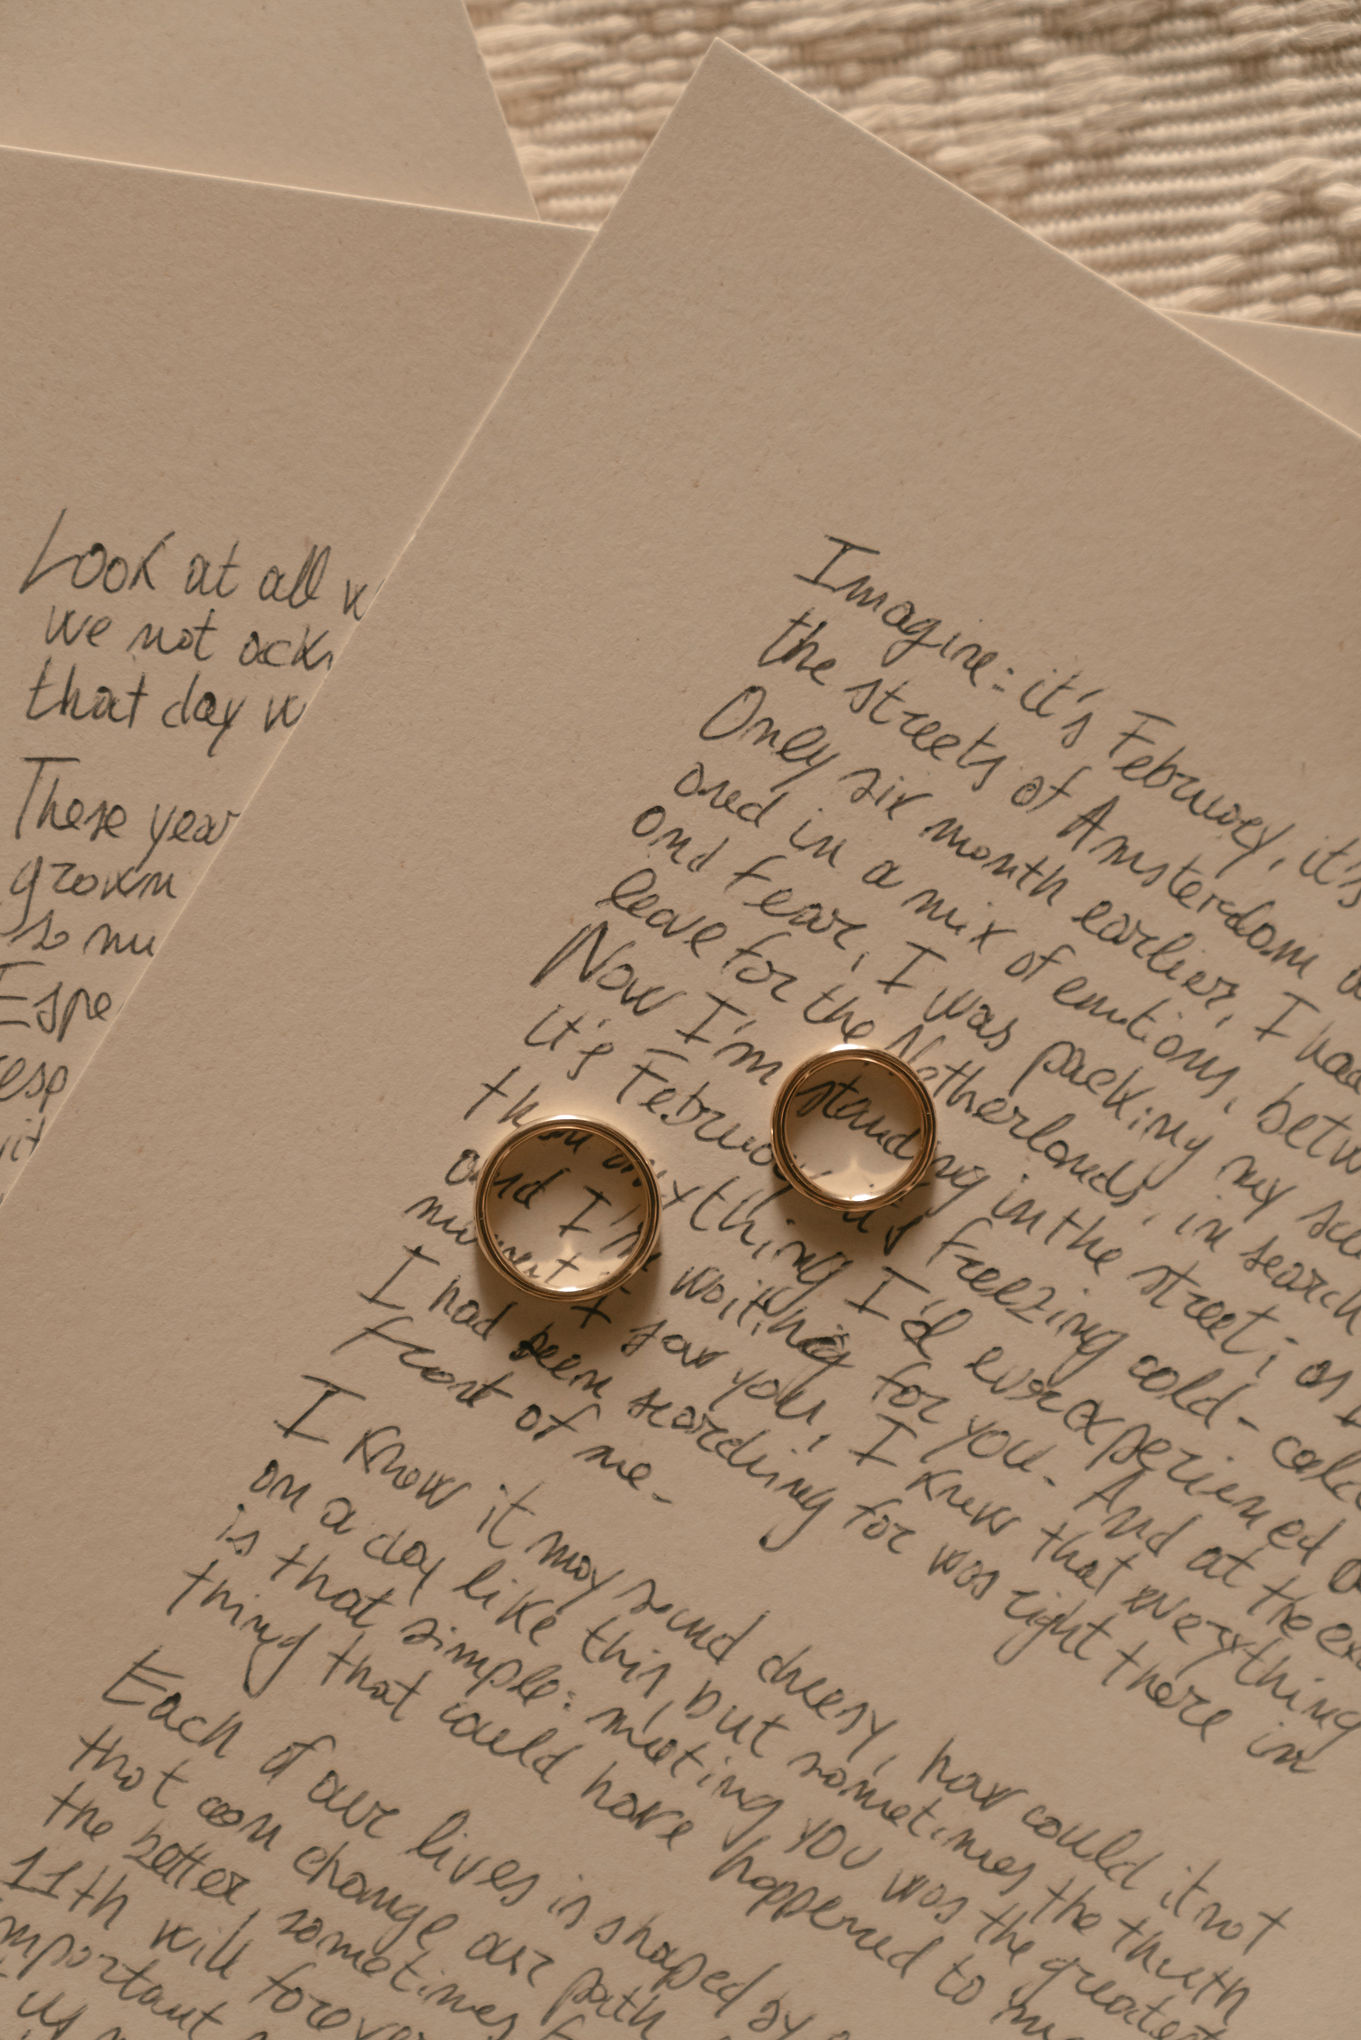 Look at all
we not
that day
These
grown
so
Imagine: it's February, it's
the streets of Amsterdam
Only six month earlier, I had
and in a mix of emotions,
and fear, I was packing my
leave for the Netherlands, in search
Now I'm standing in the street; as I
it's February, it's freezing cold - cold
than anything I'd ever experienced
and I'm waiting for you. And at the
moment I saw you, I knew that everything
I had been searching for was right there in
front of me.
I know it may sound cheesy, how could it not
on a day like this, but sometimes the thuth
is that simple: meeting you was the greatest
thing that could have happened to
Each of our lives is shaped by
that can change our path
the better, sometimes
11th will
important
us